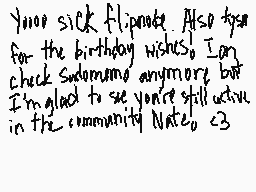 Yooo sick flipnote. Also tysm
for the birthday wishes! I can
check sudomemo anymore but
I'm glad to see you're still active
in the community Nate! <3